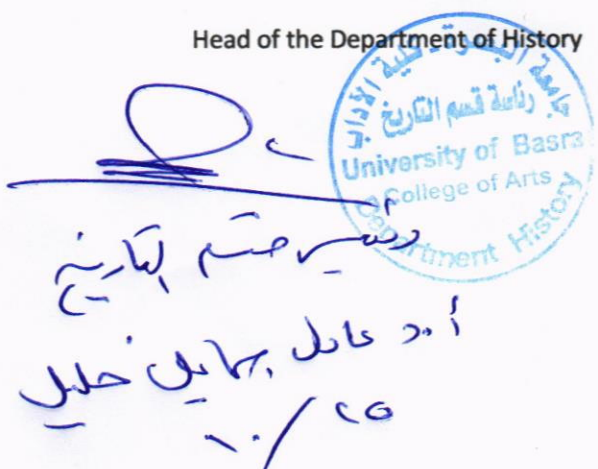 Head of the Department of History
جامعة البصرة - كلية الآداب
رئاسة قسم التاريخ
University of Basra
College of Arts
Department History
رئيس قسم التاريخ
أ.د عادل خليل
١٠/٢٥